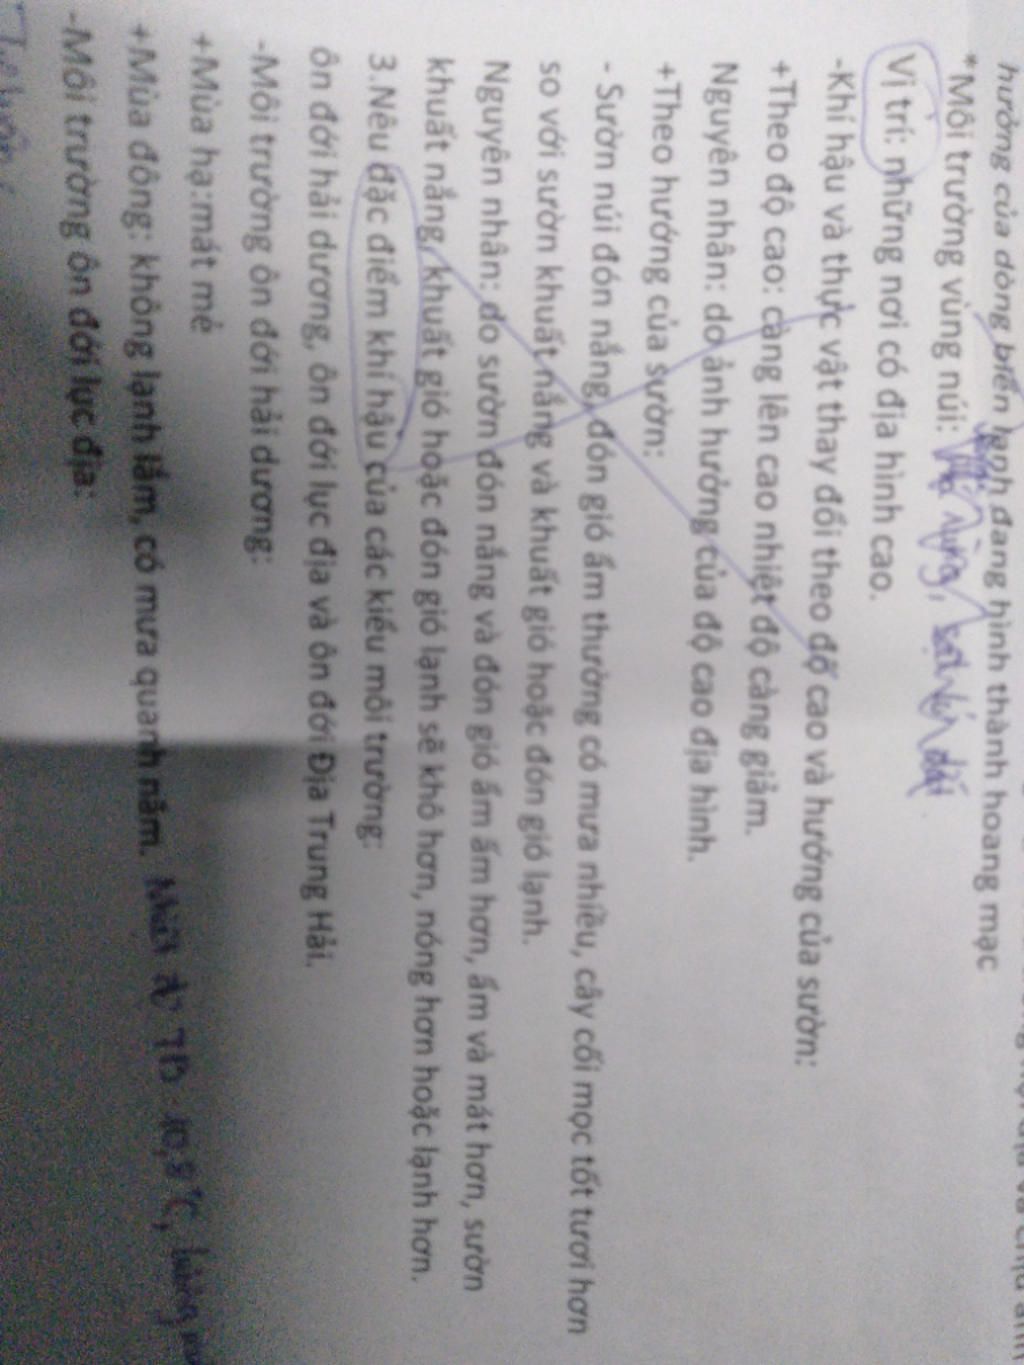 hưởng của dòng biển lạnh đang hình thành hoang mạc
*Môi trường vùng núi:
Vị trí: những nơi có địa hình cao.
-Khí hậu và thực vật thay đổi theo độ cao và hướng của sườn:
+Theo độ cao: càng lên cao nhiệt độ càng giảm.
Nguyên nhân: do ảnh hưởng của độ cao địa hình.
+Theo hướng của sườn:
- Sườn núi đón nắng, đón gió ấm thường có mưa nhiều, cây cối mọc tốt tươi hơn
so với sườn khuất nắng và khuất gió hoặc đón gió lạnh.
Nguyên nhân: do sườn đón nắng và đón gió ấm ấm hơn, ẩm và mát hơn, sườn
khuất nắng, khuất gió hoặc đón gió lạnh sẽ khô hơn, nóng hơn hoặc lạnh hơn.
3.Nêu đặc điểm khí hậu của các kiểu môi trường:
ôn đới hải dương, ôn đới lục địa và ôn đới Địa Trung Hải.
-Môi trường ôn đới hải dương:
+Mùa hạ:mát mẻ
+Mùa đông: không lạnh lắm, có mưa quanh năm. TB 10,8°C, lượng
-Môi trường ôn đới lục địa: